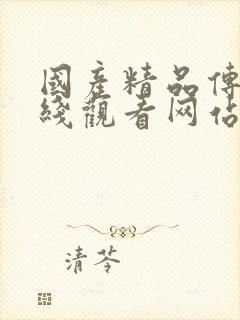 國產精品傳
綫觀看网佔
清苓